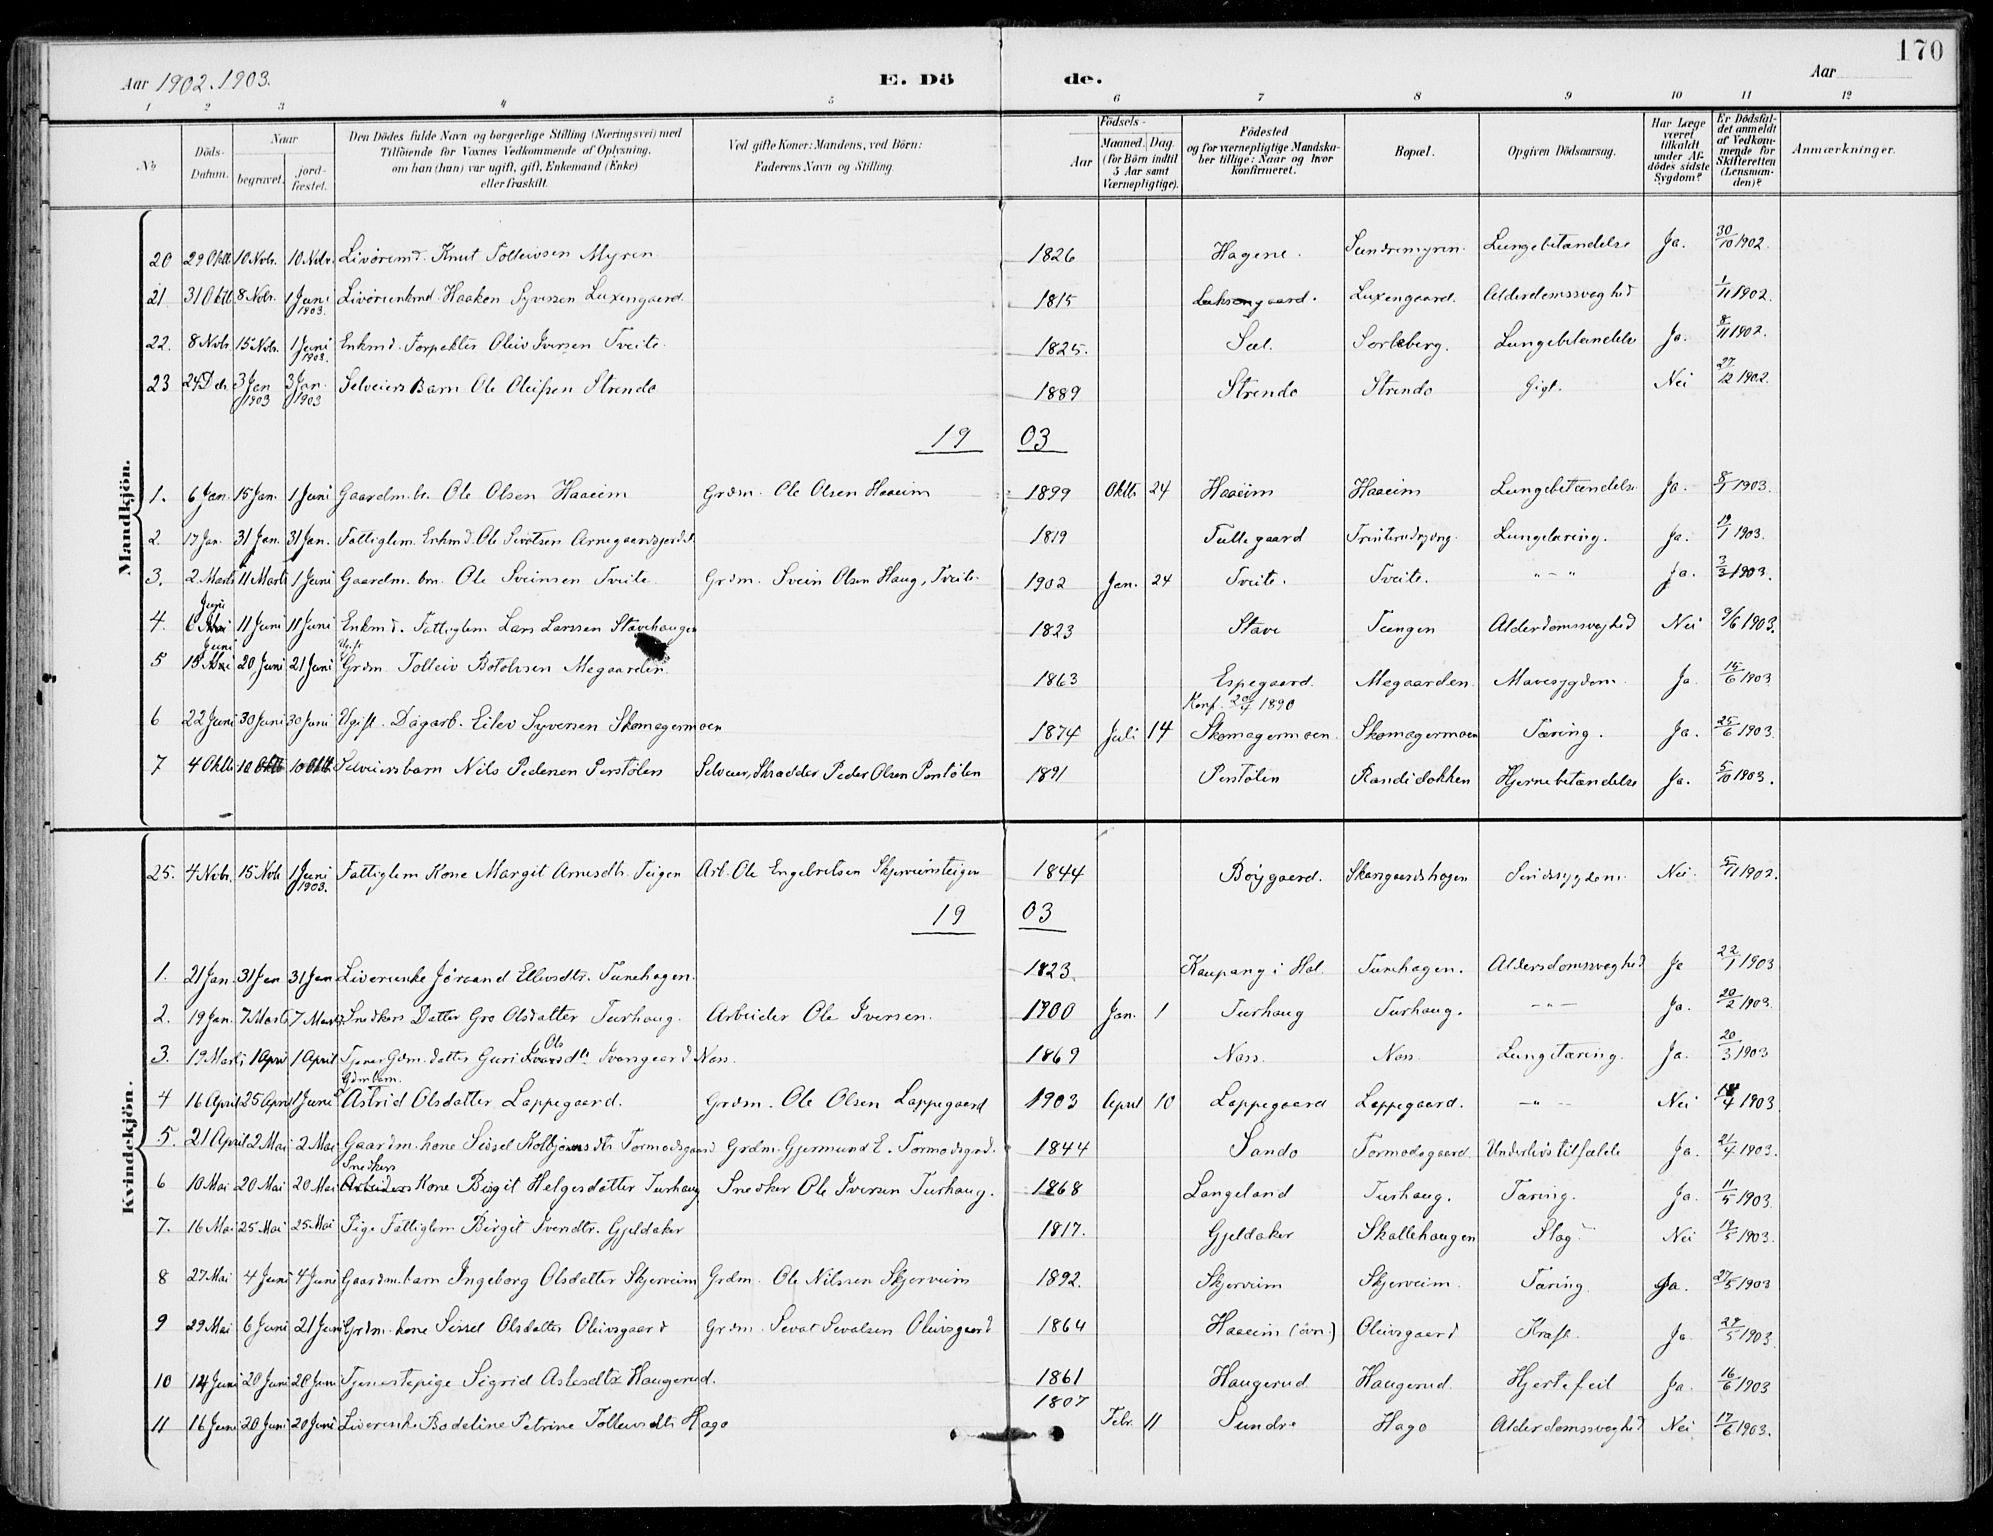 170
Aar 1902. 1903.
E. Dö de.
Aar
1 2 3 4 5 6 7 8 9 10 11 12
No
Döds-Datum.
Naar
begravet.
jord-fæstet.
Den Dödes fulde Navn og borgerlige Stilling (Næringsvei) med
Tilföiende for Voxnes Vedkommende af Oplysning,
om han (hun) var ugift, gift, Enkemand (Enke)
eller fraskilt.
Ved gifte Koner: Mandens, ved Börn:
Faderens Navn og Stilling.
Födsels-
Aar
Maaned. Dag.
(for Börn indtil
5 Aar samt
Værnepligtige).
Födested
og for værnepligtige Mandska-
ber tillige: Naar og hvor
konfirmeret.
Bopæl.
Opgiven Dödsaarsag.
Har Læge
været
tilkaldt
under Af-
dödes sidste
Sygdom?
Er Dödsfal-
det anmeldt
af Vedkom-
mende for
Skifteretten
(Lensman-
den)?
Anmærkninger.
Mandkjön.
20 29 Oktb 10 Nvbr. 10 Nvbr. Livöremd. Knut Tolleivsen Myren 1826 Hagene. Sundremyren. Lungebetændelse Ja. 30/10 1902.
21 31 Oktb 8 Nvbr. 1 Juni 1903. Livörenkmd. Haaken Syversen Luxengaard. 1815 Luksengaard. Luxengaard. Alderdomssvaghed 1/11 1902.
22. 8 Nvbr. 15 Nvbr. 1 Juni 1903. Enkmd. Forpakter Oleiv Iversen Tveito. 1825. Sæl. Sorteberg. Lungebetændelse Ja. 8/11 1902.
23 24 Dcb 3 Jan 1903 3 Jan. 1903 Selveiers Barn Ole Oleifsen Strendo 1889 Strendo Strendo Gigt. Nei 27/12 1902.
19 03
1. 6 Jan. 15 Jan. 1 Juni Gaardm. br. Ole Olsen Haaeim Grdm. Ole Olsen Haaeim 1899 Oktb 24 Haaeim Haaeim Lungebetændelse Ja. 8/1 1903.
2. 17 Jan. 31 Jan. 31 Jan. Fattiglem. Enkmd. Ole Sevatsen Arnegaardsjordet 1819 Tullegaard Lungetæring. Ja. 19/1 1903.
3. 2 Marts 11 Marts 1 Juni Gaardm. brn. Ole Sveinsen Tveito. Grdm. Svein Olsen Haug, Tveito. 1902 Jan. 24 Tveito. Tveito. " - " Ja. 3/3 1903.
4. 6 Juni 11 Juni 11 Juni Enkmd. Fattiglem Lars Larssen Stavehaugen 1823 Stave Teigen Alderdomssvaghed Nei 9/6 1903.
5 15 Juni 20 Juni 21 Juni Ugift Grdm. Tolleiv Botolvsen Megaarden. 1863 Espegaard. Megaarden. Mavesygdom. Ja. 15/6 1903
6 22 Juni 30 Juni 30 Juni Ugift. Dagarb. Eilev Syversen Skomagermoen 1874 Juli 14 Konf. 20/4 1890 Skomagermoen. Skomagermoen Tæring. Ja. 25/6 1903.
7 4 Oktb 10 Oktb 10 Oktb. Selveiersbarn Nils Pedersen Perstölen Selveier, Skrædder Peder Olsen Perstölen 1891 Perstölen Randidokken Hjernebetændelse Ja. 5/10 1903.
Kvindekjön.
25. 4 Nvbr. 15 Nvb 1 Juni 1903. Fattiglem Kone Margit Arnesdtr. Teigen Arb. Ole Engebretsen Skjerveimsteigen 1844 Böygaard. Skangaardshagen Sindssygdom. Nei. 5/11 1902.
19 03
1. 21 Jan. 31 Jan 31 Jan Livörenke Jörand Ellevsdtr. Tunehagen. 1823. Kaupang i Hol. Tunehagen. Aldersdomssvaghed Ja 22/1 1903
2. 19 Jan. 7 Marts 7 Marts Snedkers Datter Gro Olsdatter Turhaug. Arbeider Ole Iversen. 1900 Jan. 1 Turhaug Turhaug. - " - Ja. 20/2 1903.
3. 19 Marts 1 April 1 April Tjener Gdm. datter Guri Olsdtr Ivarsgaard Næss. 1869 Næss. Næss. Lungetæring. Ja. 20/3 1903
4 16 April 25 April 1 Juni Gdm barn. Astrid Olsdatter Lappegaard. Grdm. Ole Olsen Lappegaard 1903 April 10 Lappegaard Lappegaard. - " - Nei 18/4 1903
5. 21 April 2 Mai 2 Mai Gaardm. kone Sissel Kolbjörnsdtr Tormodsgaard Grdm. Gjermund E. Tormodsgrd. 1844 Sando Tormodsgaard. Underlivstilfælde Ja. 21/4 1903.
6 10 Mai 20 Mai 20 Mai Snedkers Arbeiders Kone Birgit Helgesdatter Turhaug Snedker Ole Iversen Turhaug. 1868 Langeland Turhaug. Tæring. Ja. 11/5 1903.
7. 16 Mai 25 Mai 25 Mai Pige Fattiglem Birgit Svendtr. Gjeldaker 1817. Gjeldaker Skallehaugen Slag Nei 19/5 1903.
8 27 Mai 4 Juni 4 Juni Gaardm. barn Ingeborg Olsdatter Skjerveim Grdm. Ole Nilssen Skjerveim 1892. Skjerveim Skjerveim. Tæring Ja. 27/5 1903
9 29 Mai 6 Juni 21 Juni Grdm. kone Sissel Olsdatter Oleivsgaard Grdm. Sevat Sevatsen Oleivsgaard 1864 Haaeim (övr.) Oleivsgaard Kræft. Ja. 29/5 1903.
10 14 Juni 20 Juni 20 Juni Tjenestepige Sigrid Aslesdtr Haugerud. 1861 Haugerud Haugerud. Hjertefeil Ja. 16/6 1903
11 16 Juni 20 Juni 20 Juni Livörenke Bodeline Petrine Tolleivsdtr Hago 1807 Febr. 11 Sundre Hago Alderdomssvaghed Nei 17/6 1903.